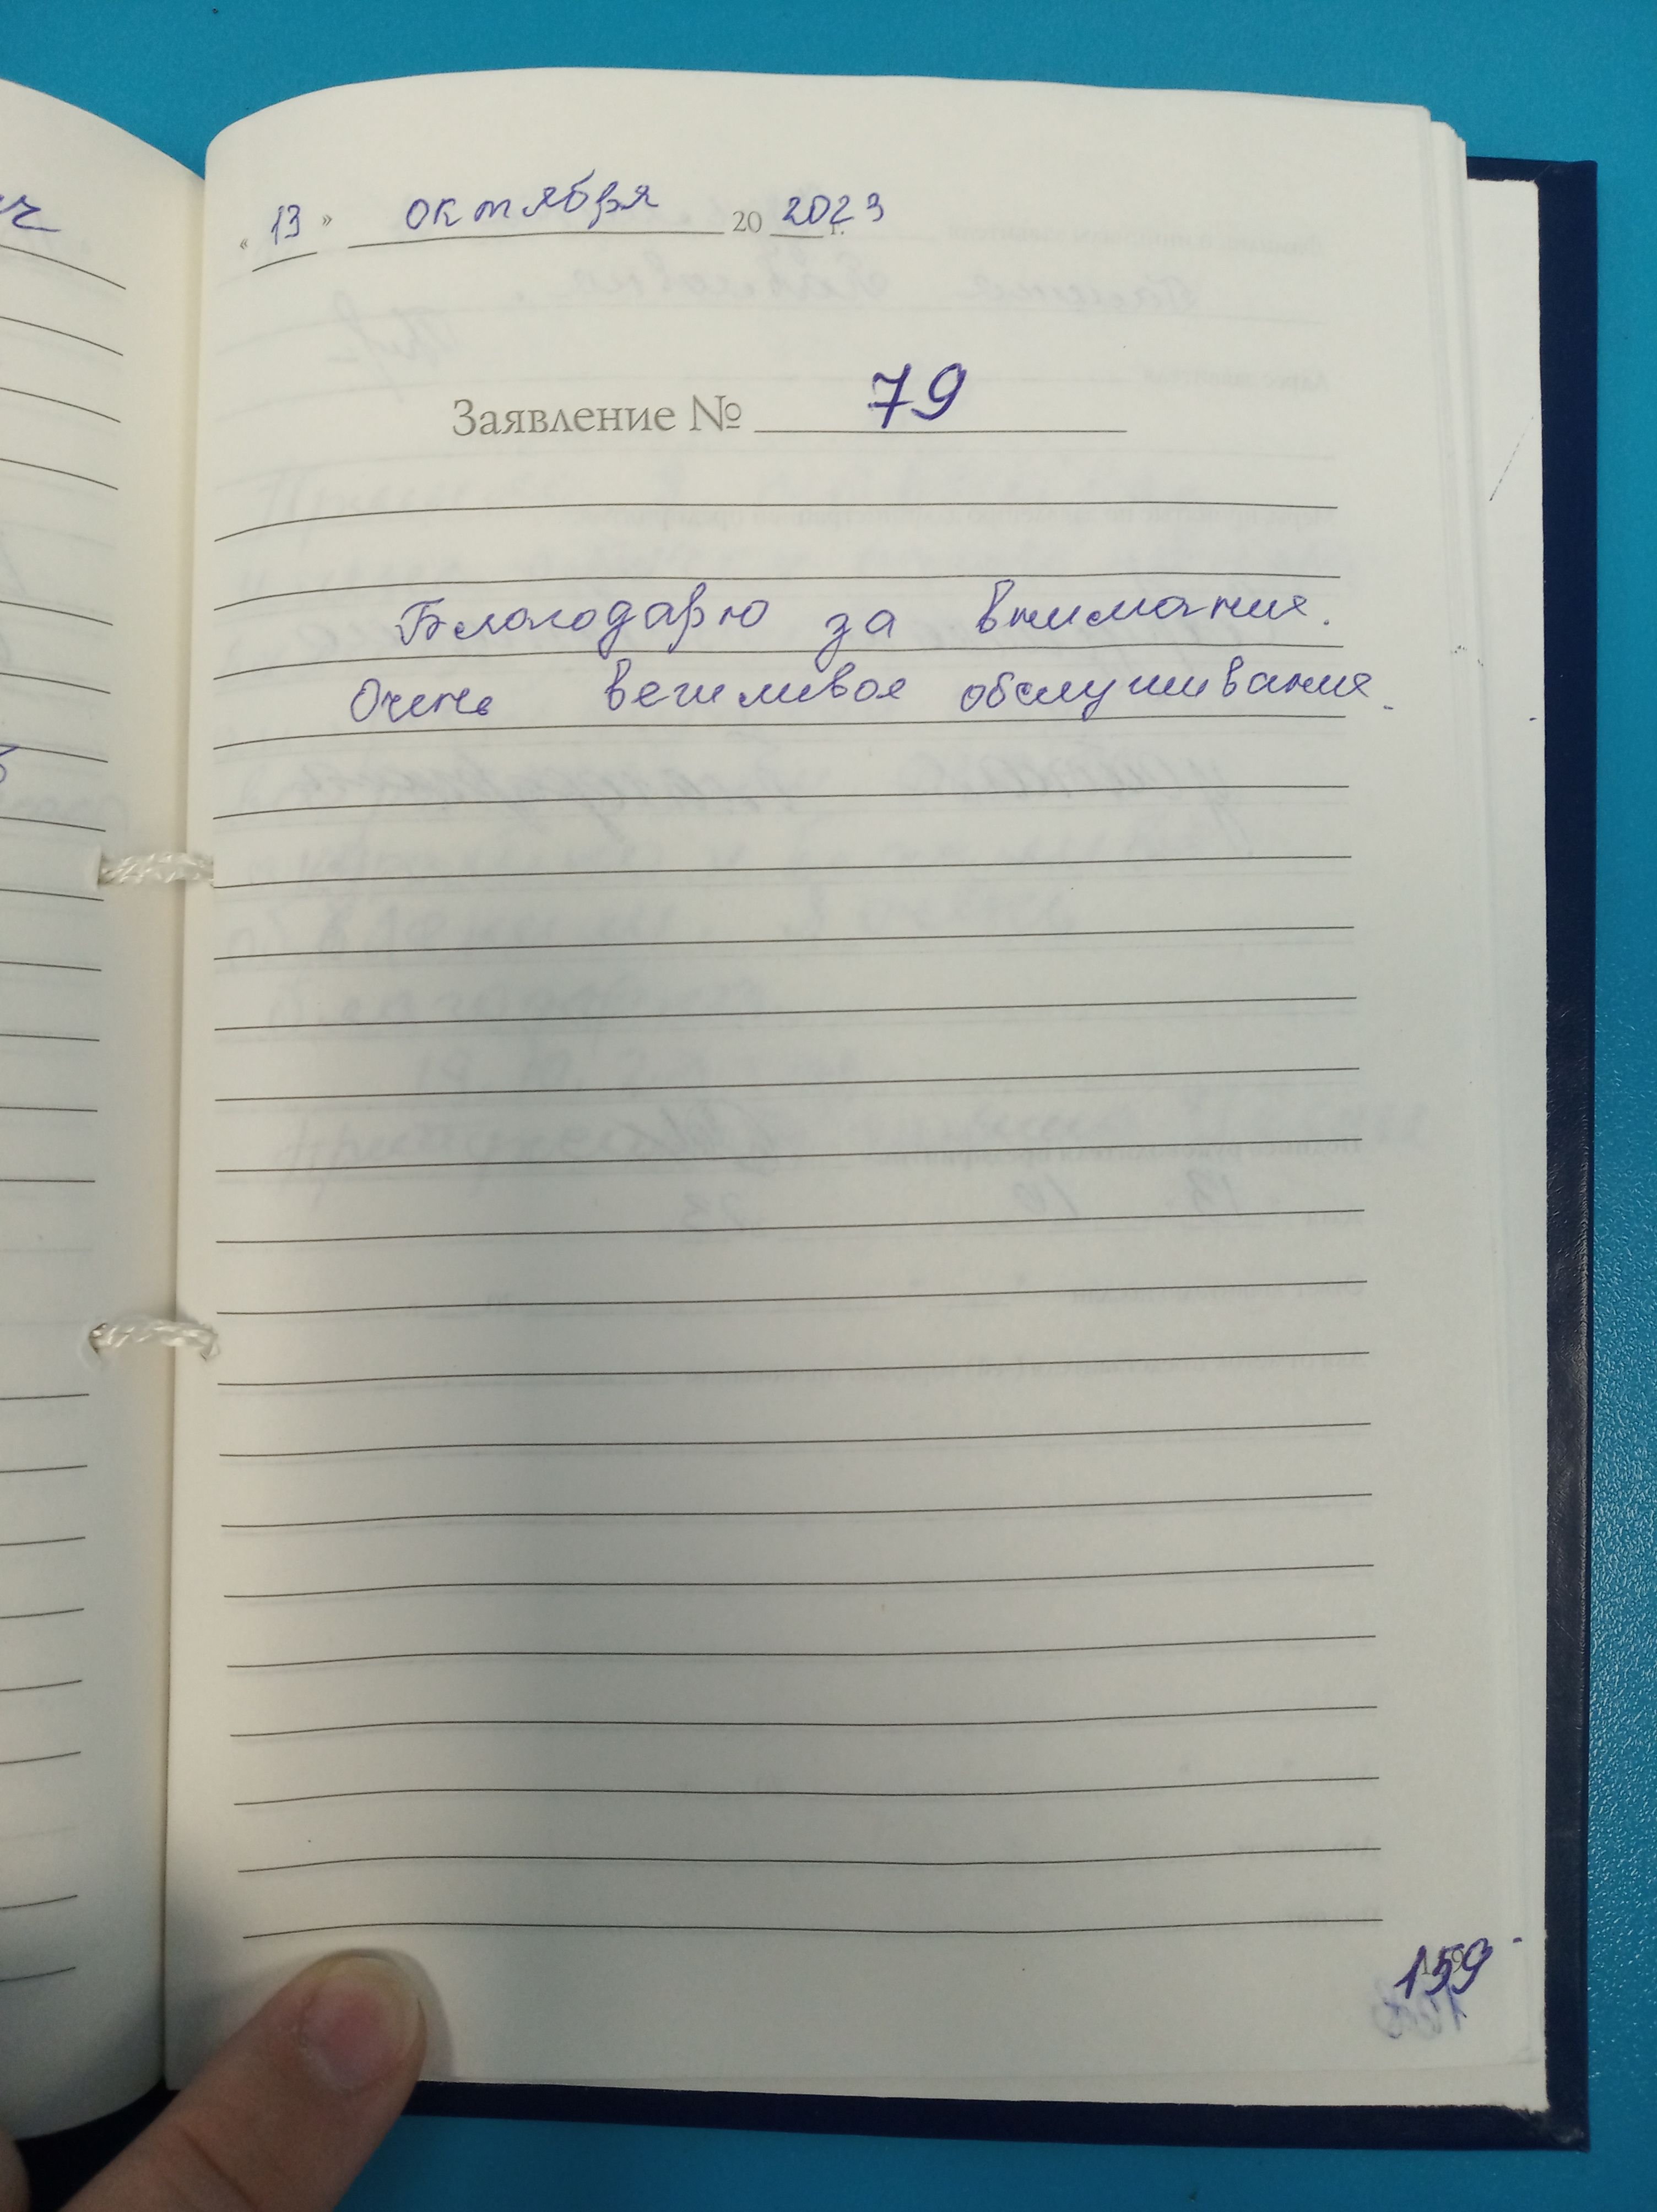 « 13 » октября 20 2023 г.
Заявление № 79
Благодарю за внимание.
Очень вежливое обслуживание.
159